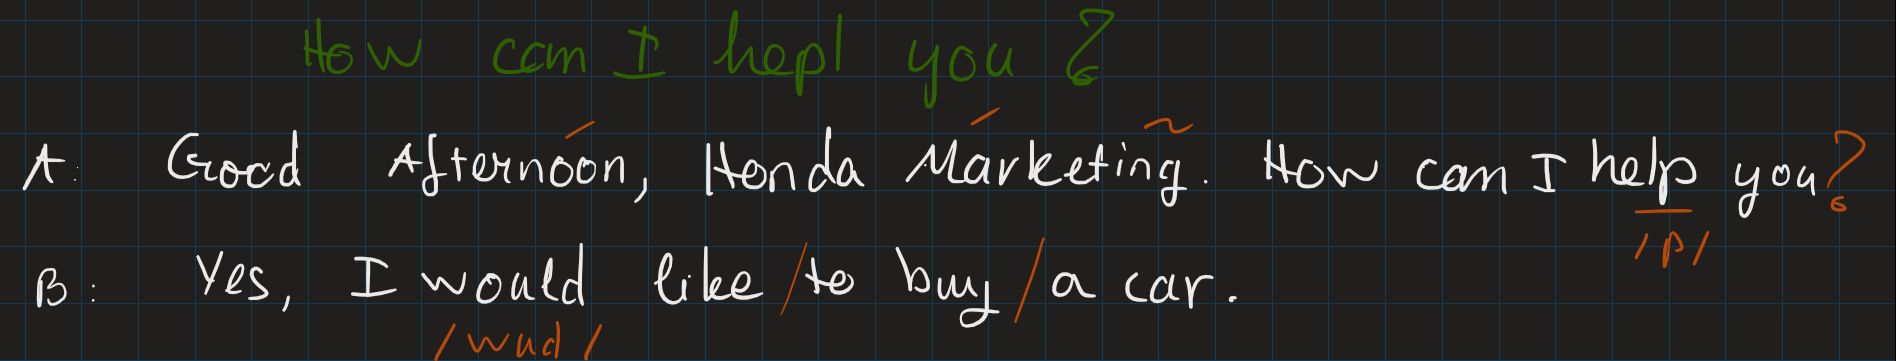 How can I hepl you?
A: Good Afternoon, Honda Marketing. How can I help you?
/p/
B: Yes, I would like / to buy / a car.
/wud/